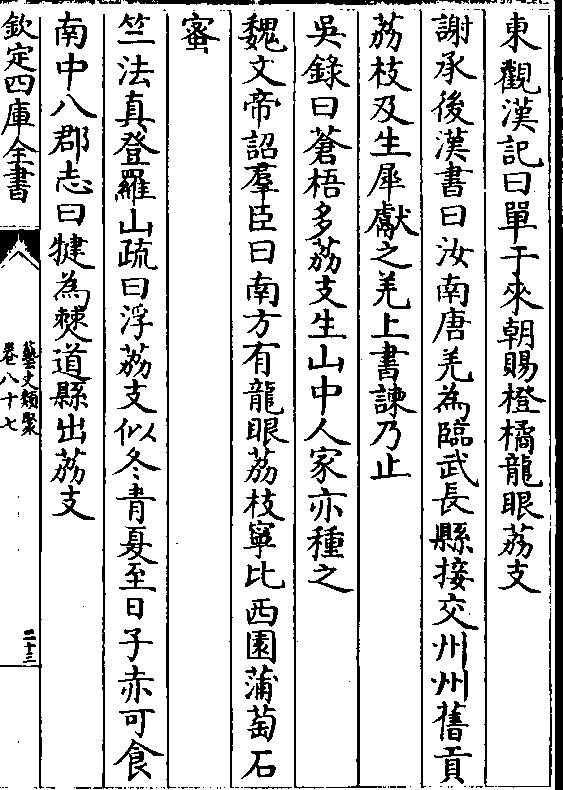 東觀漢記曰單于來朝賜橙橘龍眼荔支
謝承後漢書曰汝南唐羌為臨武長縣接交州州舊貢
荔枝及生犀獻之羌上書諫乃止
吳錄曰蒼梧多荔支生山中人家亦種之
魏文帝詔羣臣曰南方有龍眼荔枝寧比西園蒲萄石
蜜
竺法真登羅山疏曰浮荔支似冬青夏至日子赤可食
南中八郡志曰犍為僰道縣出荔支
欽定四庫全書
藝文類聚
卷八十七
二十三